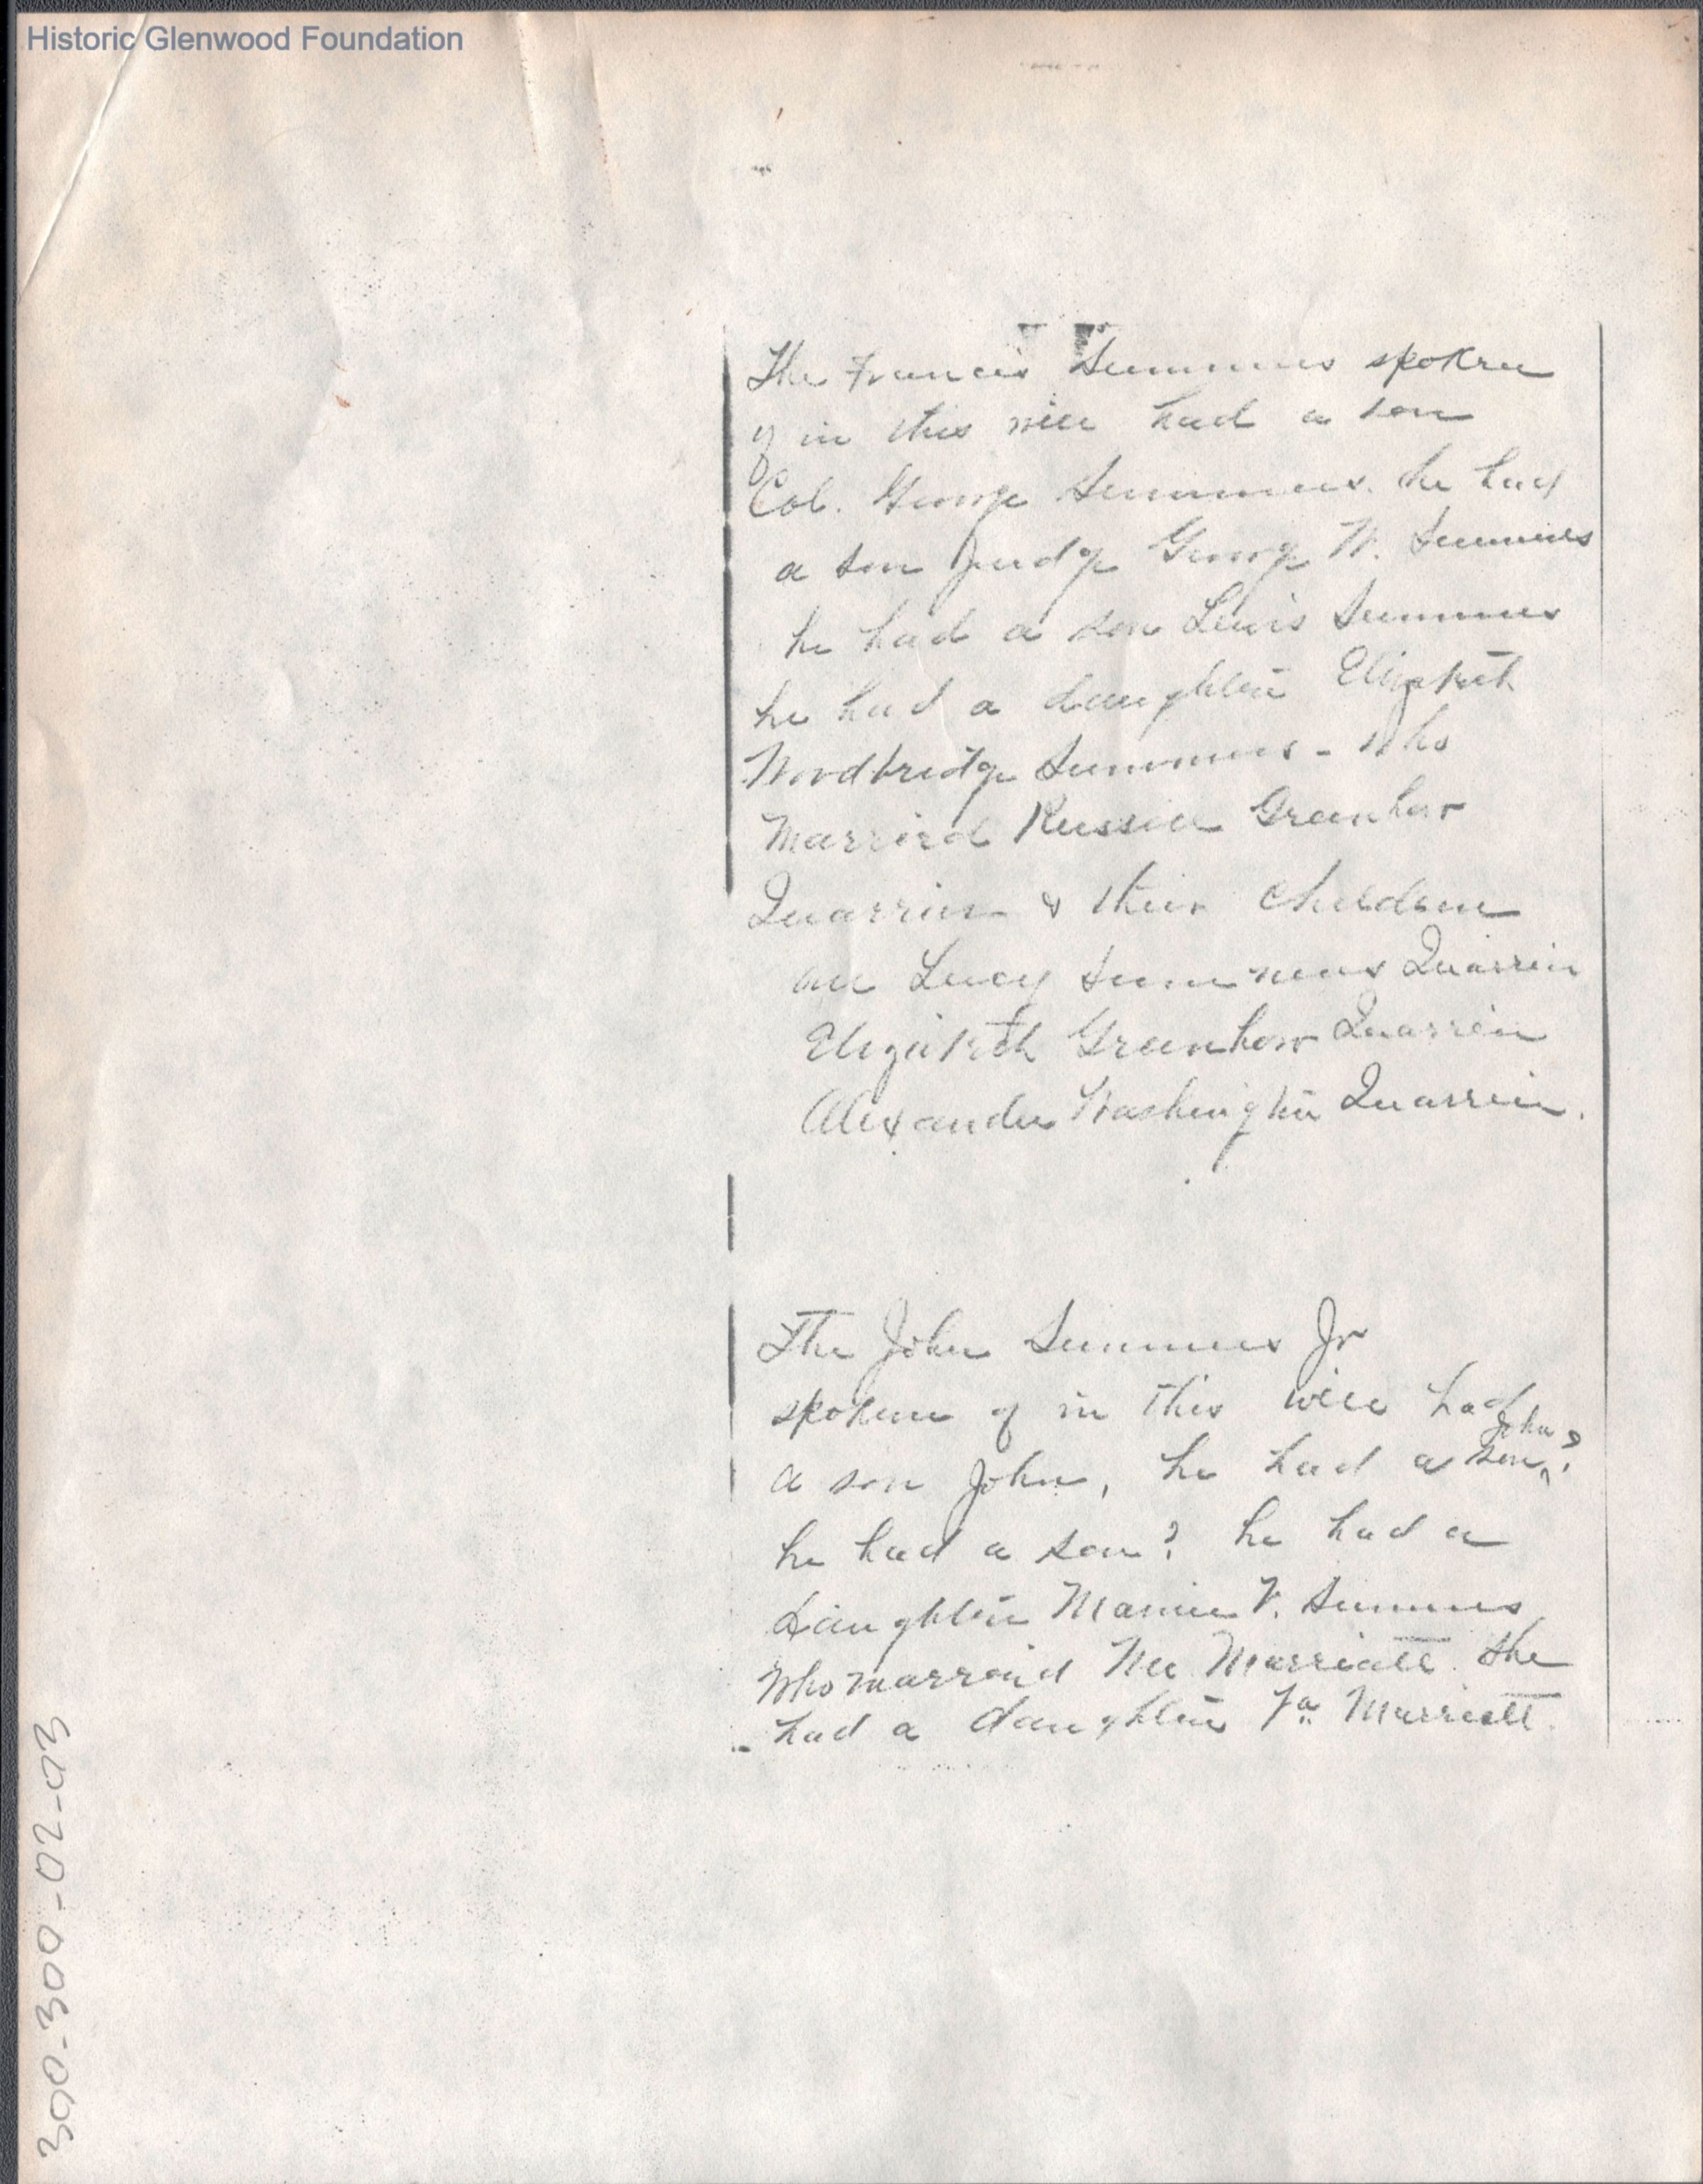 Historic Glenwood Foundation
The Francis Summers spoken
of in this will had a son
Col. George Summers. he had
a son Judge George W. Summers
he had a son Lewis Summers
he had a daughter Elizabeth
Woodbridge Summers - who
Married Russell Greenhow
Quarrier & their children
are Lucy Summers Quarrier
Elizabeth Greenhow Quarrier
Alexander Washington Quarrier.
The John Summers Jr
spoken of in this will had
a son John, he had a son John ?
he had a son? he had a
daughter Mamie V. Summers
Who married Marriott she
had a daughter Marriott.
300-300-02-03